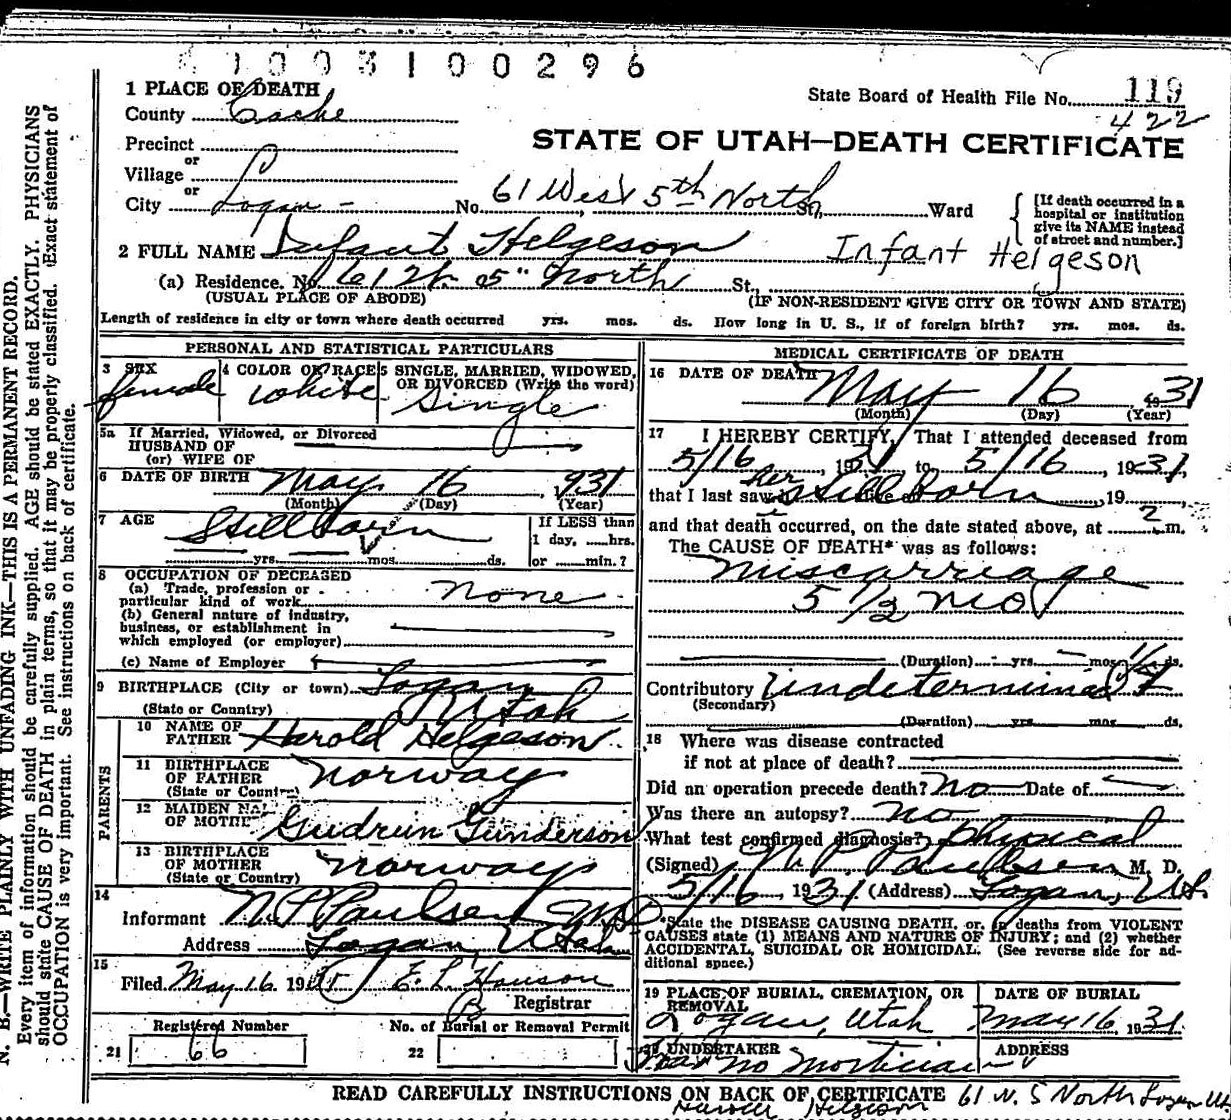 1003100296
1 PLACE OF DEATH
County Cache
State Board of Health File No. 119
422
Precinct
or
STATE OF UTAH—DEATH CERTIFICATE
Village
or
City Logan - No. 61 West 5th North St, Ward
[If death occurred in a
hospital or institution
give its NAME instead
of street and number.]
2 FULL NAME Infant Helgeson
Infant Helgeson
(a) Residence. No 61 W. 5" North St.,
(USUAL PLACE OF ABODE) (IF NON-RESIDENT GIVE CITY OR TOWN AND STATE)
Length of residence in city or town where death occurred yrs. mos. ds. How long in U. S., if of foreign birth? yrs. mos. ds.
PERSONAL AND STATISTICAL PARTICULARS
3 SEX 4 COLOR OR RACE 5 SINGLE, MARRIED, WIDOWED,
OR DIVORCED (Write the word)
female white Single
5a If Married, Widowed, or Divorced
HUSBAND OF
(or) WIFE OF
6 DATE OF BIRTH May 16, 931
(Month) (Day) (Year)
7 AGE Stillborn
If LESS than
1 day, ......hrs.
yrs. mos. ds. or ......min.?
8 OCCUPATION OF DECEASED
(a) Trade, profession or
particular kind of work None
(b) General nature of industry,
business, or establishment in
which employed (or employer)
(c) Name of Employer
9 BIRTHPLACE (City or town) Logan
(State or Country) Utah
PARENTS
10 NAME OF
FATHER Harold Helgeson
11 BIRTHPLACE
OF FATHER
(State or Country) Norway
12 MAIDEN NA
OF MOTHE Gudrun Gunderson
13 BIRTHPLACE
OF MOTHER
(State or Country) Norway
14
Informant N P Paulsen MD
Address Logan, Utah
15
Filed May 16 19 E. L. Hanson
Registrar
Registered Number No. of Burial or Removal Permit
21 66 22
MEDICAL CERTIFICATE OF DEATH
16 DATE OF DEATH May 16 1931
(Month) (Day) (Year)
17 I HEREBY CERTIFY, That I attended deceased from
5/16, 1931 to 5/16, 1931,
that I last saw her Stillborn, 19
and that death occurred, on the date stated above, at 2 m.
The CAUSE OF DEATH* was as follows:
Miscarriage
5 1/2 mo
(Duration) yrs. mos. ds.
Contributory Undetermined
(Secondary)
(Duration) yrs. mos. ds.
18 Where was disease contracted
if not at place of death?
Did an operation precede death? No Date of
Was there an autopsy? No
What test confirmed diagnosis? Physical
(Signed) N. P. Paulsen, M. D.
5/16 1931 (Address) Logan, Ut.
*State the DISEASE CAUSING DEATH, or, in deaths from VIOLENT
CAUSES state (1) MEANS AND NATURE OF INJURY; and (2) whether
ACCIDENTAL, SUICIDAL OR HOMICIDAL. (See reverse side for ad-
ditional space.)
19 PLACE OF BURIAL, CREMATION, OR
REMOVAL
DATE OF BURIAL
Logan, Utah May 16 1931
20 UNDERTAKER ADDRESS
Had no Mortician
READ CAREFULLY INSTRUCTIONS ON BACK OF CERTIFICATE
Harold Helgeson 61 W. 5 North Logan Ut
N. B.—WRITE PLAINLY WITH UNFADING INK—THIS IS A PERMANENT RECORD.
Every item of information should be carefully supplied. AGE should be stated EXACTLY. PHYSICIANS
should state CAUSE OF DEATH in plain terms, so that it may be properly classified. Exact statement of
OCCUPATION is very important. See instructions on back of certificate.